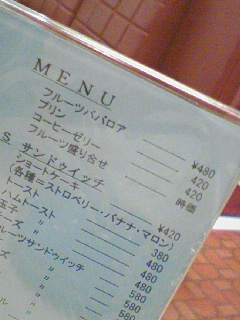 MENU
フルーツババロア ¥480
プリン 420
コーヒーゼリー 420
フルーツ盛り合せ 時価
S サンドウィッチ
ショートケーキ ¥420
(各種=ストロベリー・バナナ・マロン)
トースト 380
ハムトースト 480
玉子 〃 480
ズ 〃 480
ルーツサンドウィッチ 580
〃 580
〃 580